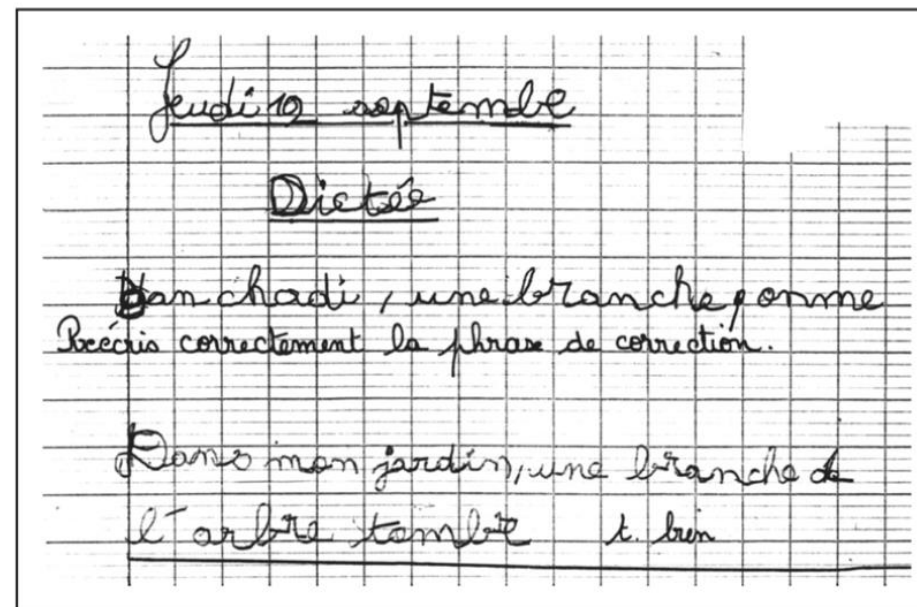 Jeudi 12 septembe
Dictée
Dan chadi, une branche, onme
Réécris correctement la phrase de correction.
Dans mon jardin, une branche de
l'arbre tombre t. bien